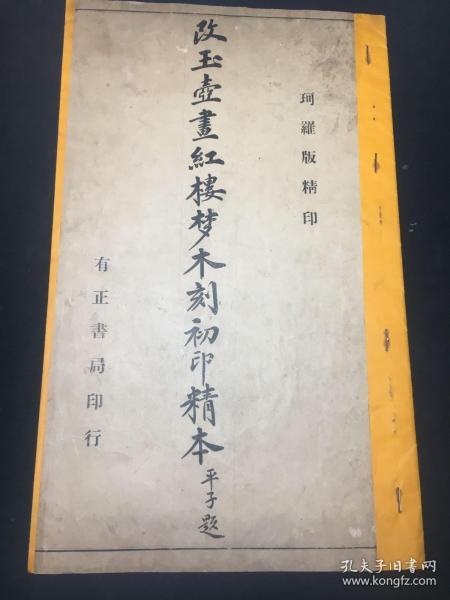 珂羅版精印
改玉壺畫紅樓梦木刻初印精本 平子題
有正書局印行
孔夫子旧书网
www.kongfz.com